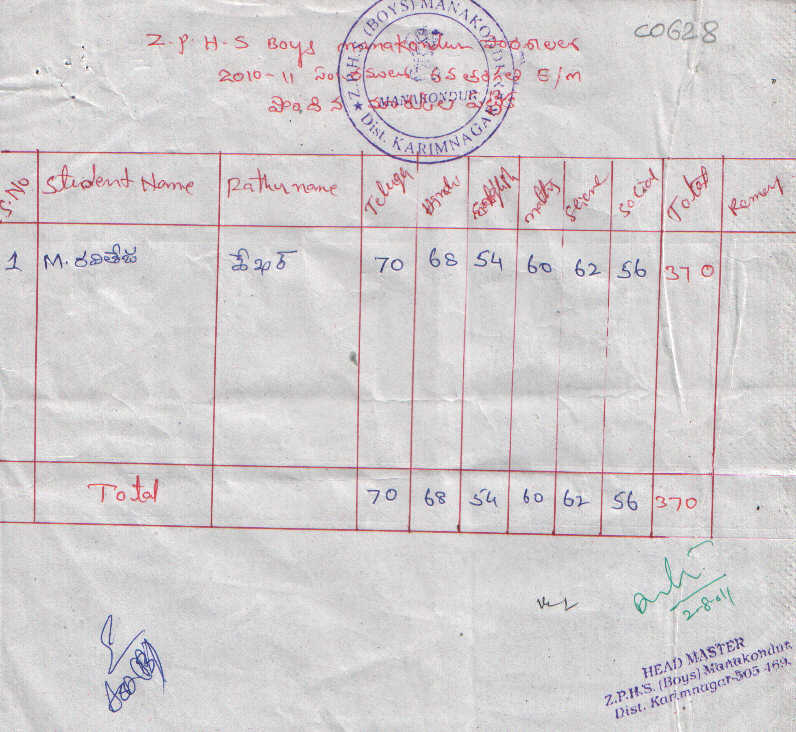 C0628
Z.P.H.S (BOYS) MANAKONDUR
MANAKONDUR
★ Dist. KARIMNAGAR
Z.P.H-S Boys manakondur
2010-11 E/M
S.No Student Name Fathu name Telugu Hindi English maths Science Social Total Remark
1 M. రవితేజ శేఖర్ 70 68 54 60 62 56 370
Total 70 68 54 60 62 56 370
2-8-011
HEAD MASTER
Z.P.H.S. (Boys) Manakondur,
Dist. Karimnagar-505 469.